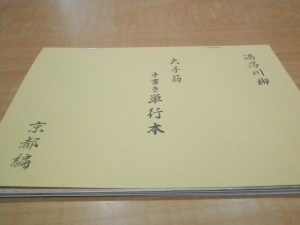 酒蔵川柳
大手筋
手書き単行本
京都編